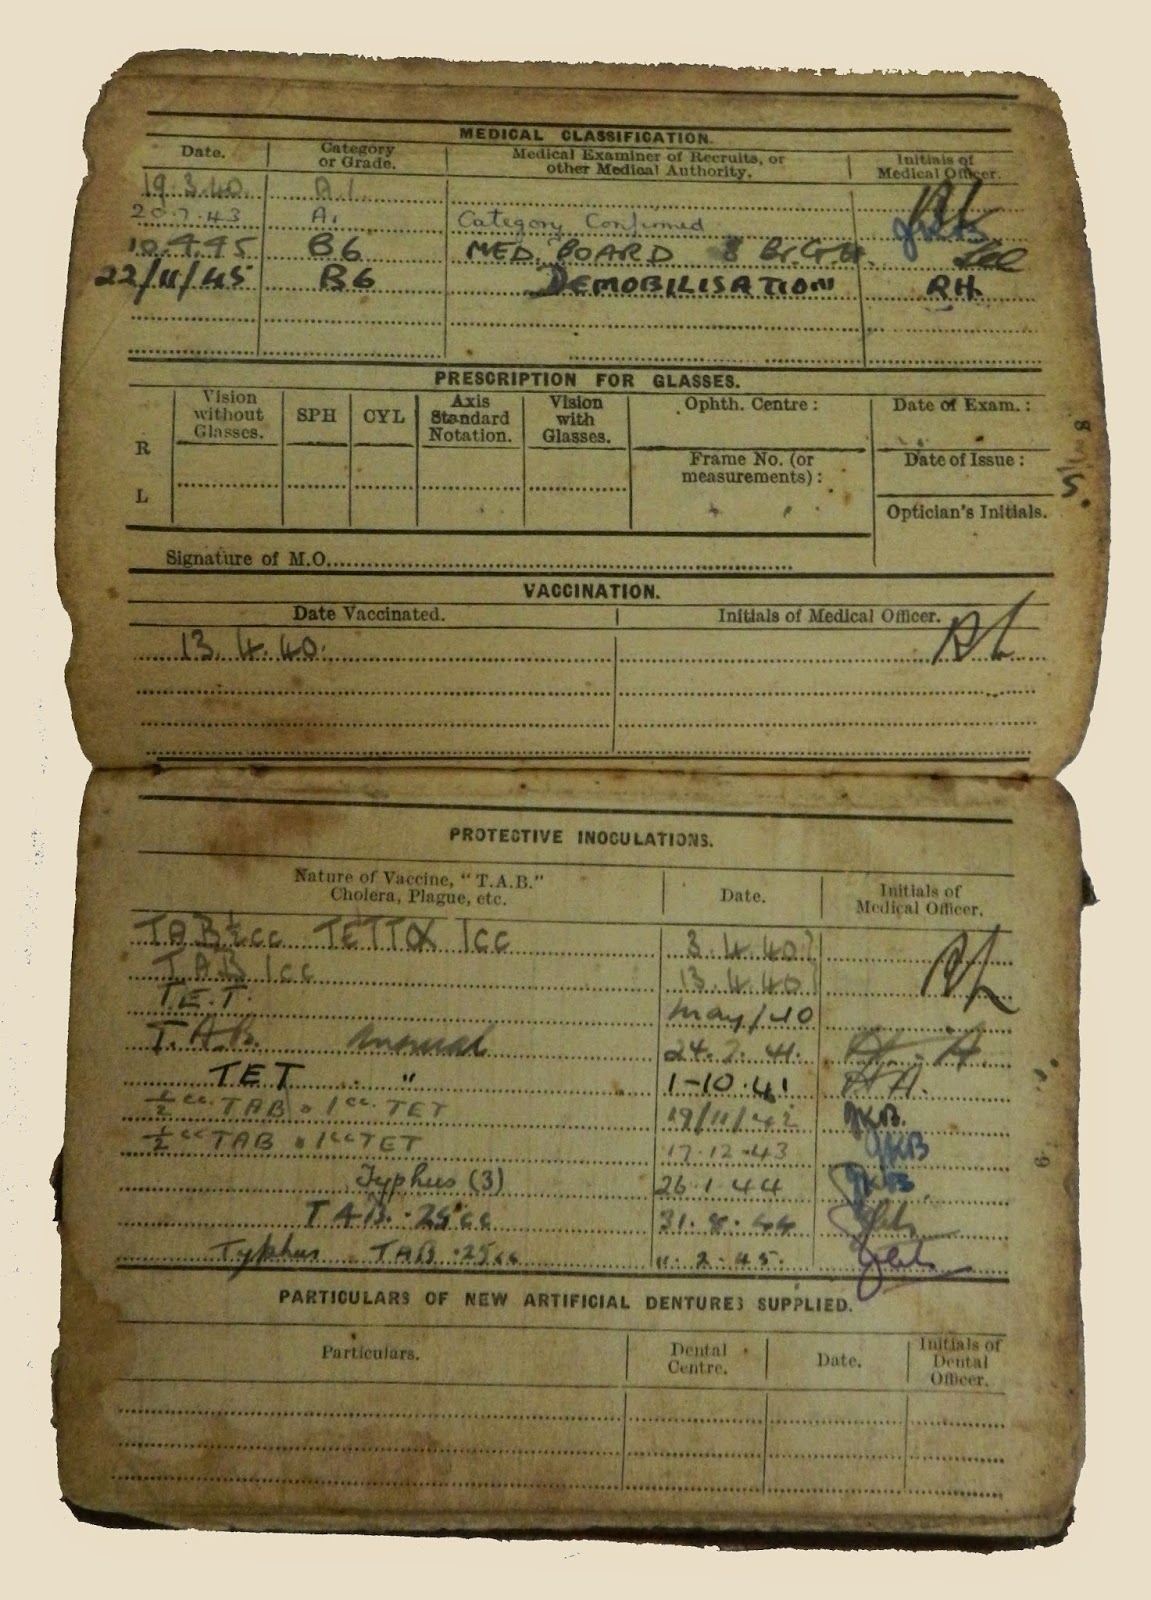 MEDICAL CLASSIFICATION.
Date. Category or Grade. Medical Examiner of Recruits, or other Medical Authority. Initials of Medical Officer.
19.3.40. A.1.
20.7.43 A1 Category Confirmed
10.4.45 B6 MED. BOARD 8 Br.G.H.
22/11/45 B6 DEMOBILISATION RH.
PRESCRIPTION FOR GLASSES.
Vision without Glasses. SPH CYL Axis Standard Notation. Vision with Glasses. Ophth. Centre : Date of Exam. :
R
Frame No. (or measurements) : Date of Issue :
L
Optician's Initials.
Signature of M.O.
VACCINATION.
Date Vaccinated. Initials of Medical Officer.
13.4.40.
PROTECTIVE INOCULATIONS.
Nature of Vaccine, "T.A.B." Cholera, Plague, etc. Date. Initials of Medical Officer.
TAB ½cc TETTOX 1cc 3.4.40
TAB 1cc 13.4.40
T.E.T. May/40
T.A.B. Annual 24.7.41.
TET " 1-10.41 A.A.
½ cc. TAB 1cc. TET 19/11/42 JKB.
½ cc TAB 1cc TET 17.12.43 JKB
Typhus (3) 26.1.44 JKB.
TAB. .25cc 31.8.44
Typhus TAB .25cc 11.2.45.
PARTICULARS OF NEW ARTIFICIAL DENTURES SUPPLIED.
Particulars. Dental Centre. Date. Initials of Dental Officer.